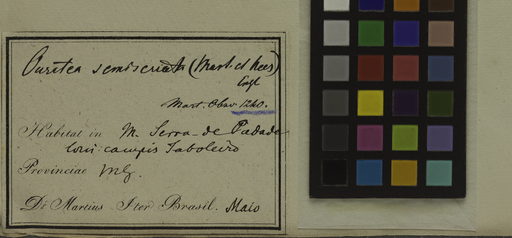 Ouratea semiserrata (Mart. et Nees)
Engl
Mart. Obser 1240.
Habitat in M. Serra de Piedade
loui: campis Taboleiro
Provinciae MG.
Dr Martius Iter Brasil. Maio